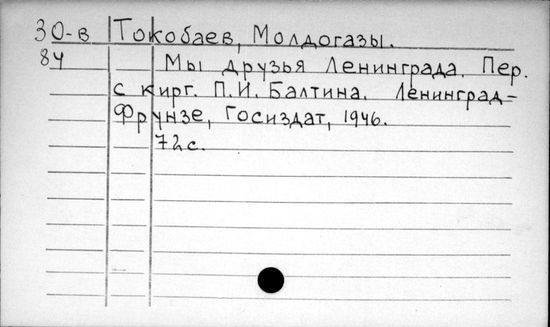 30-в Токобаев, Молдогазы.
84 Мы друзья Ленинграда. Пер.
с кирг. П.И. Балтина. Ленинград-
Фрунзе, Госиздат, 1946.
72с.